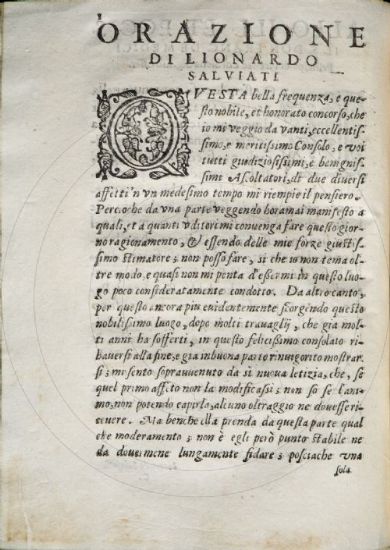 ORAZIONE
DI LIONARDO
SALVIATI
QVESTA bella frequenza, e que
sto nobile, et honorato concorso, che
io mi veggio davanti, eccellentis
simo, e meritissimo Consolo, e voi
tutti giudiziosissimi, e benignis
simi Ascoltatori, di due diversi
affetti 'n un medesimo tempo mi riempie il pensiero.
Percioche da una parte veggendo horamai manifesto a
quali, et a quanti uditori mi convenga fare questo gior
no ragionamento, & essendo delle mie forze giustis
simo stimatore; non posso fare, si che io non tema ol
tre modo, e quasi non mi penta d'essermi in questo luo
go poco consideratamente condotto. Da altro canto,
per questo ancora piu evidentemente scorgendo questo
nobilissimo luogo, dopo molti travaglij, che già mol
ti anni ha sofferti, in questo felicissimo consolato ri
haversi alla fine, e già in buona parte rinvigorito mostrar
si; mi sento sopravvenuto da sì nuova letizia, che, se
quel primo affetto non la modificassi; non so se l'ani
mo, non potendo capirla, alcuno oltraggio ne dovesse ri
cevere. Ma benche ella prenda da questa parte qual
che moderamento; non è egli però punto stabile ne
da doversene lungamente fidare; posciache una
sola